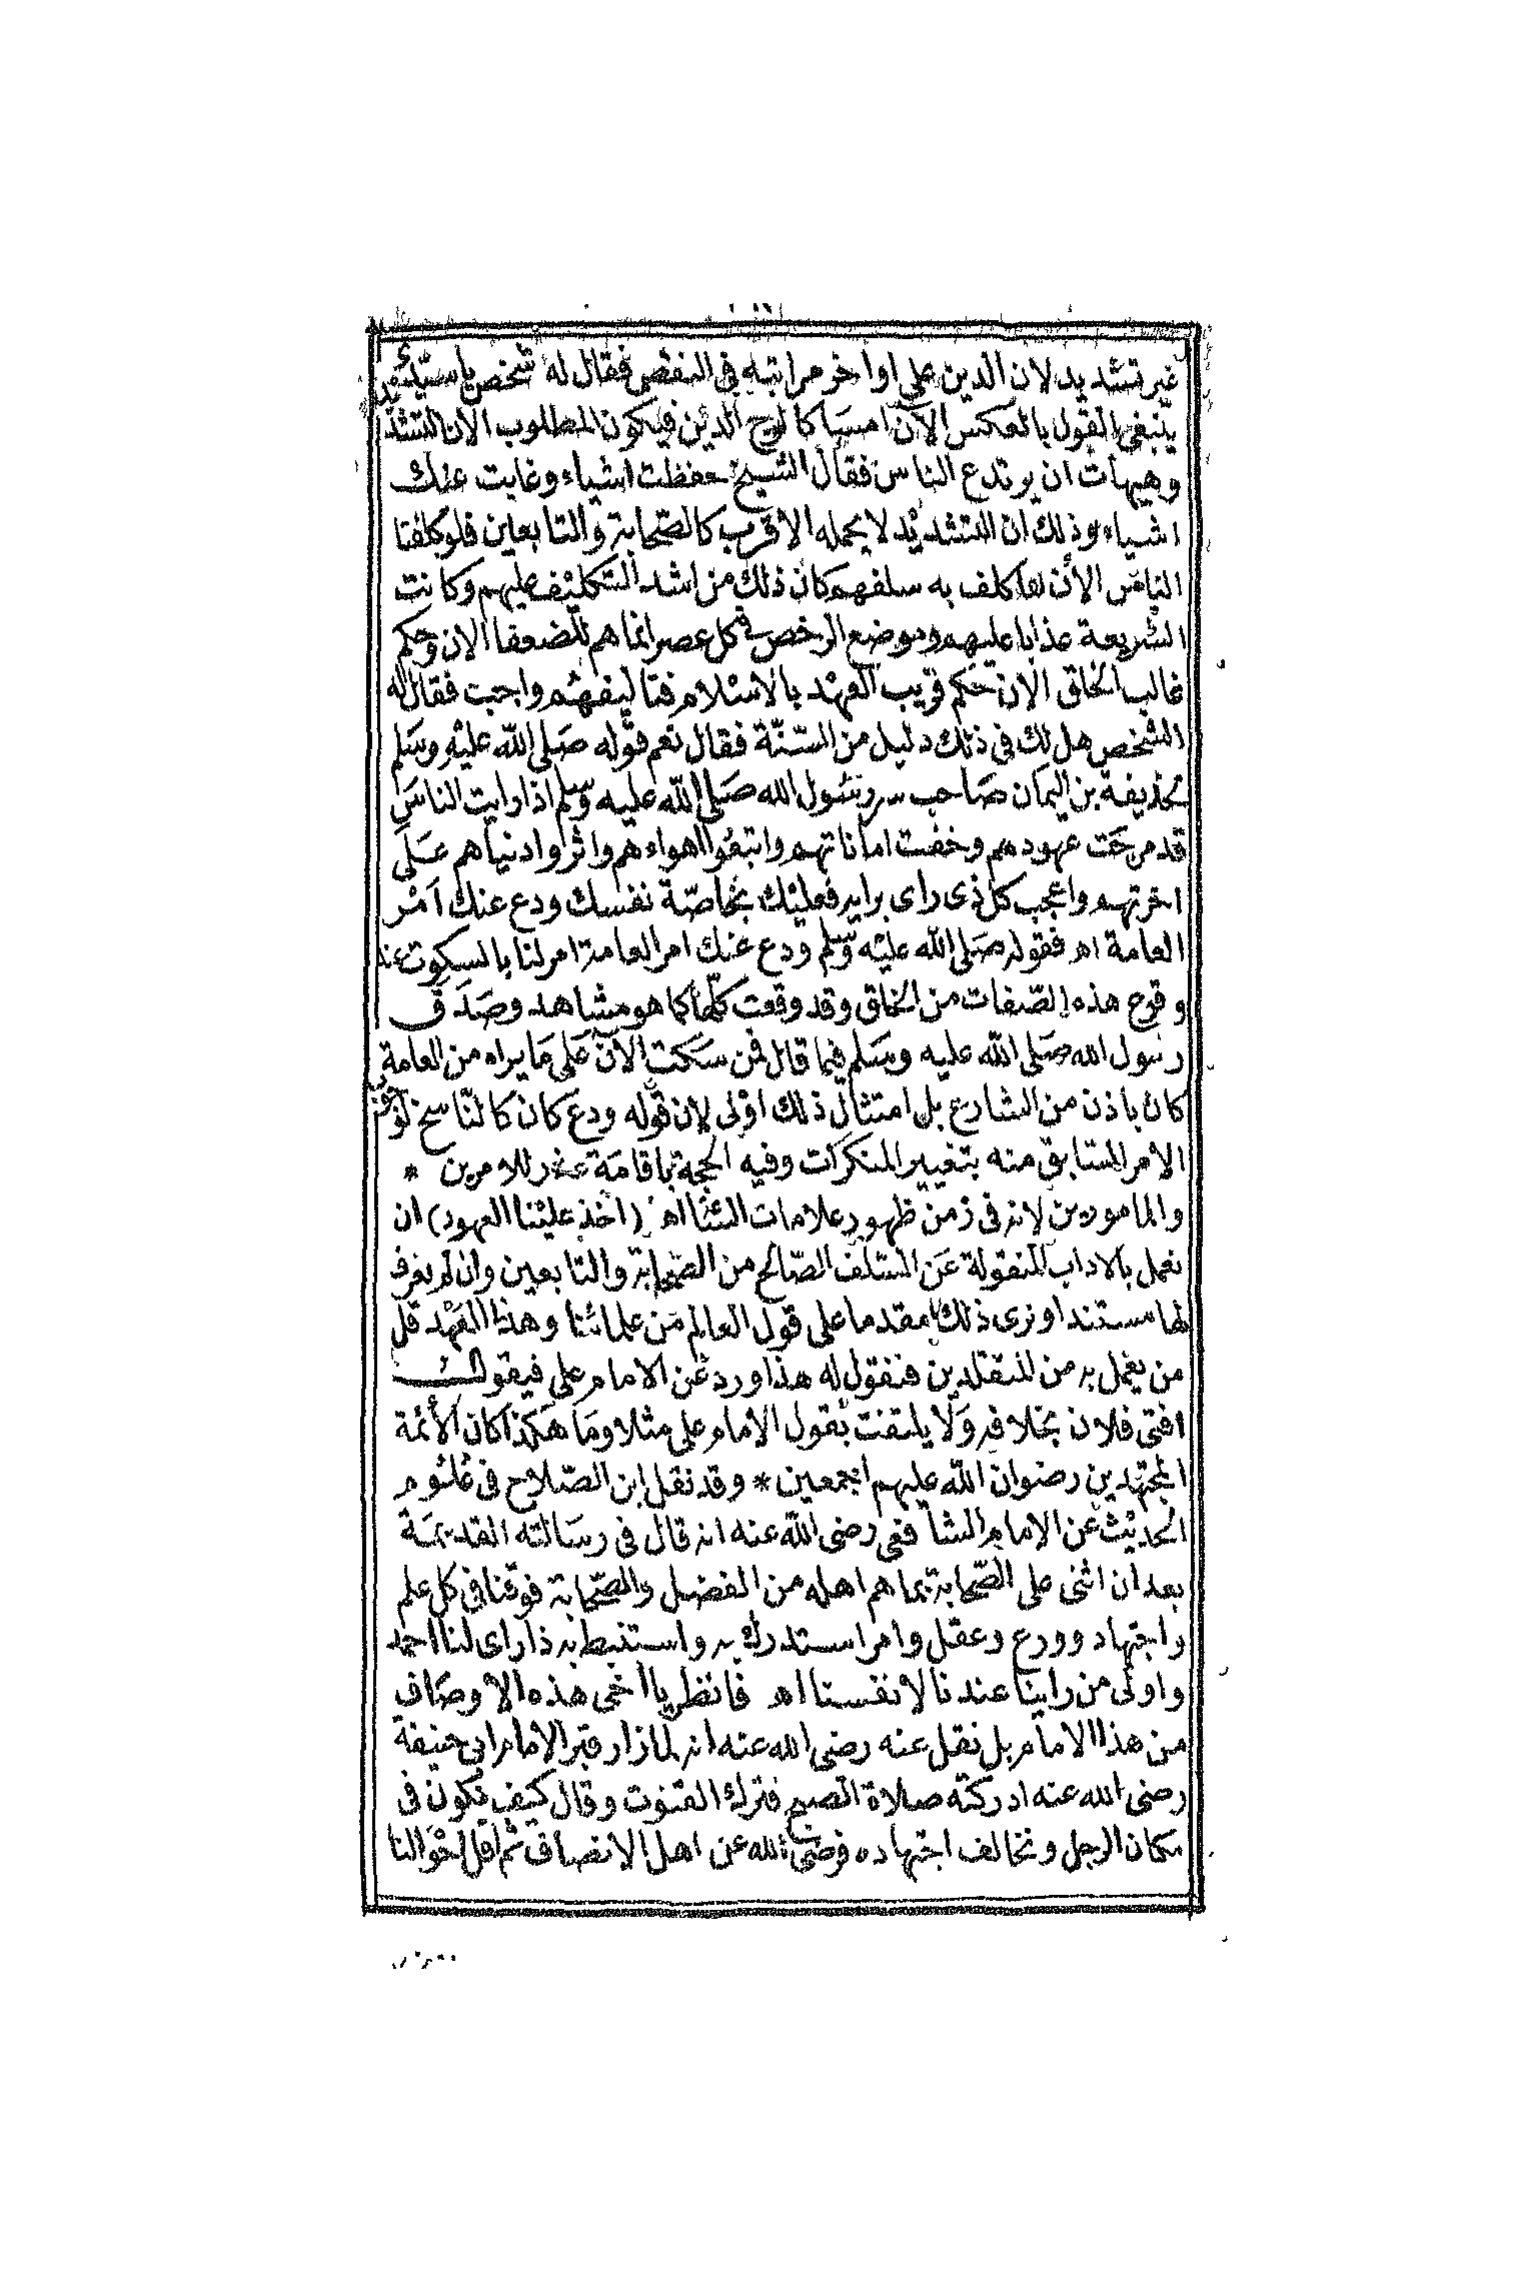 غير تشديد لان الدين على اواخر مراتبه فى النقص فقال له شخص ياسيدى
ينبغى القول بالعكس الآن امساكا لروح الدين فيكون المطلوب الان التشديد
وهيهات ان يرتدع الناس فقال الشيخ حفظت اشياء وغابت عنك
اشياء وذلك ان التشديد لا يحمله الا قرب كالصحابة والتابعين فلو كلفنا
الناس الأن بما كلف به سلفهم كان ذلك من اشد التكليف عليهم وكانت
الشريعة عذابا عليهم وموضع الرخص فى كل عصر انما هم للضعفا الان وحكم
غالب الخلق الان حكم قريب العهد بالاسلام فتاليفهم واجب فقال له
الشخص هل لك فى ذلك دليل من السنة فقال نعم قوله صلى الله عليه وسلم
لحذيفة بن اليمان صاحب سر رسول الله صلى الله عليه وسلم اذا رايت الناس
قد مرجت عهودهم وخفت اماناتهم واتبعوا اهواءهم واثروا دنياهم على
اخرتهم واعجب كل ذى راى برايه فعليك بخاصة نفسك ودع عنك امر
العامة اه فقوله صلى الله عليه وسلم ودع عنك امر العامة امر لنا بالسكوت عند
وقوع هذه الصفات من الخلق وقد وقعت كلها كما هو مشاهد وصدق
رسول الله صلى الله عليه وسلم فيما قال فمن سكت الآن على ما يراه من العامة
كان باذن من الشارع بل امتثال ذلك اولى لان قوله ودع كان كالناسخ لوقت
الامر السابق منه بتغيير المنكرات وفيه الحجة باقامة عذر للامرين *
والمامورين لانه فى زمن ظهور علامات الساعة اه (اخذ علينا العهود) ان
نعمل بالاداب المنقولة عن السلف الصالح من الصحابة والتابعين وان لم نعرف
لها مستندا ونرى ذلك مقدما على قول العالم من علمائنا وهذا العهد قل
من يعمل به من المقلدين فنقول له هذا ورد عن الامام على فيقول
افتى فلان بخلافه ولا يلتفت بقول الامام على مثلا وما هكذا كان الأئمة
المجتهدين رضوان الله عليهم اجمعين * وقد نقل ابن الصلاح فى علوم
الحديث عن الامام الشافعى رضى الله عنه انه قال فى رسالته القديمة
بعد ان اثنى على الصحابة بما هم اهله من الفضل والصحابة فوقنا فى كل علم
واجتهاد وورع وعقل وامر استدرك به واستنبط به ذا راى لنا احمد
واولى من راينا عندنا لانفسنا اه فانظر يا اخى هذه الاوصاف
من هذا الامام بل نقل عنه رضى الله عنه انه لما زار قبر الامام ابى حنيفة
رضى الله عنه ادركته صلاة الصبح فترك القنوت وقال كيف نكون فى
مكان الرجل ونخالف اجتهاده فرضى الله عن اهل الانصاف